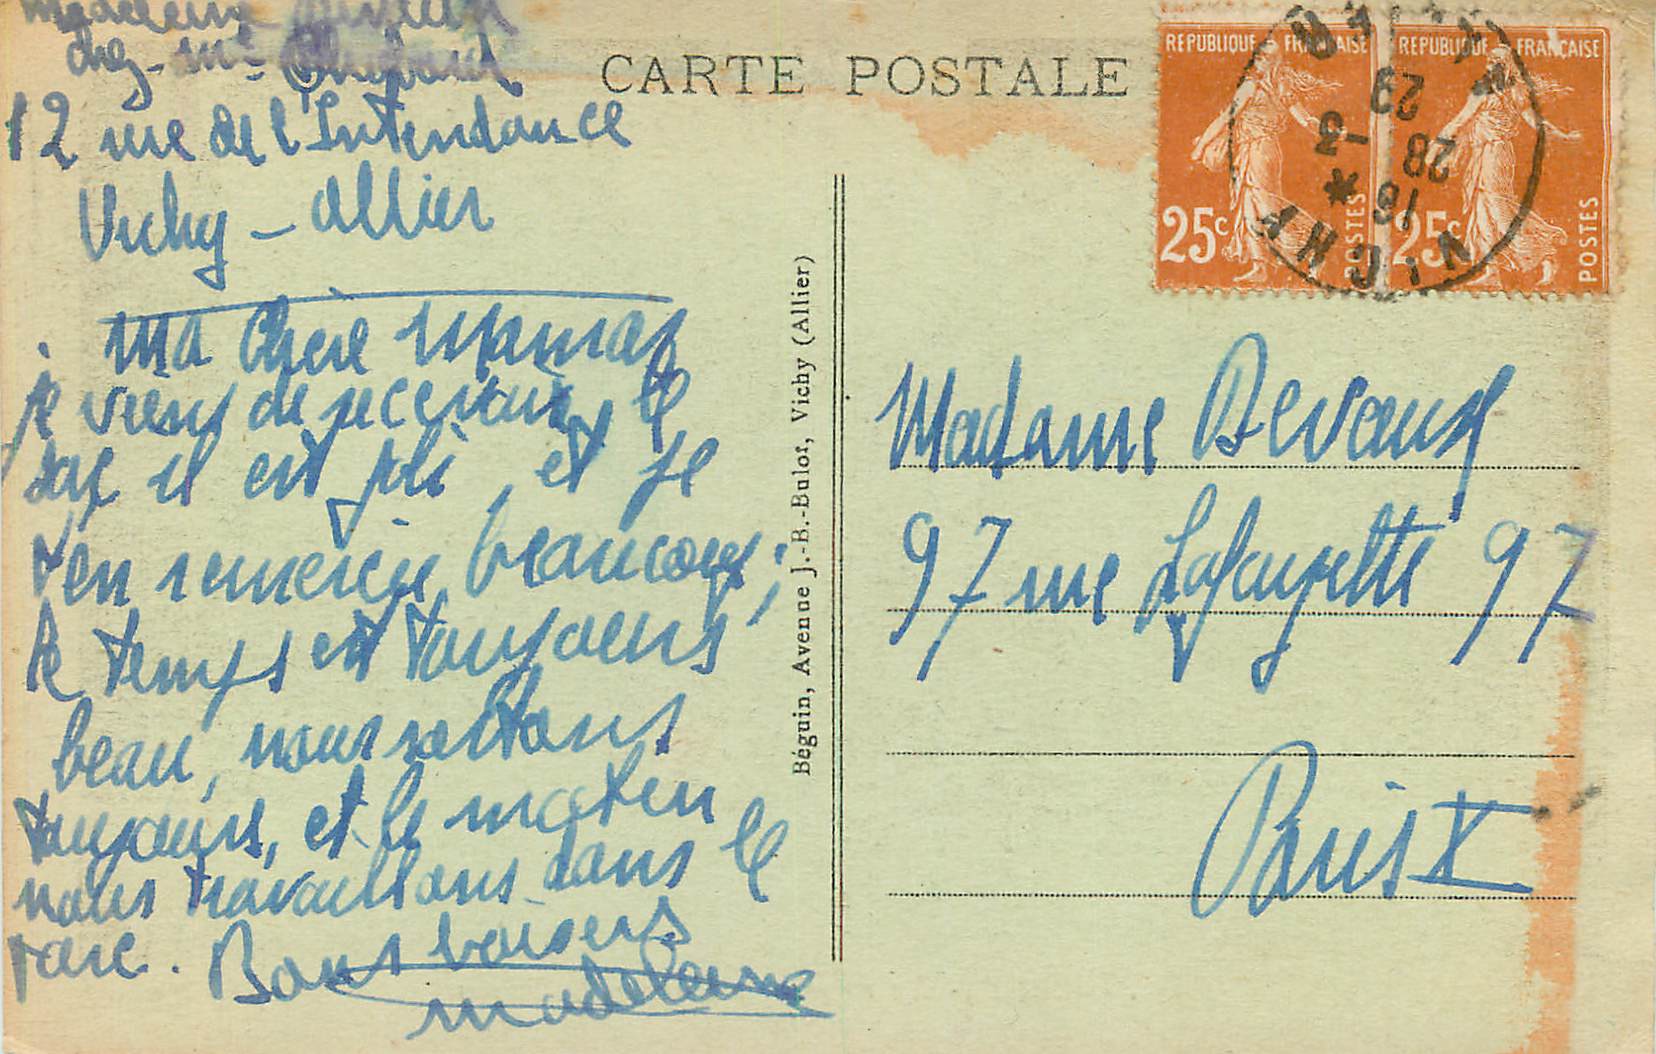 chez Mme
12 rue de l'Intendance
Vichy - Allier
Ma Chère Maman
je viens de recevoir le
sac il est joli, et je
t'en remercie beaucoup;
le temps est toujours
beau, nous sortons
toujours, et le matin
nous travaillons dans le
parc. Bons baisers
Madeleine
CARTE POSTALE
Béguin, Avenue J.-B.-Bulot, Vichy (Allier)
REPUBLIQUE FRANÇAISE
25c
POSTES
REPUBLIQUE FRANÇAISE
25c
POSTES
VICHY
16
28 *
29 -3
Madame Devaux
97 rue Lafayette 97
Paris X